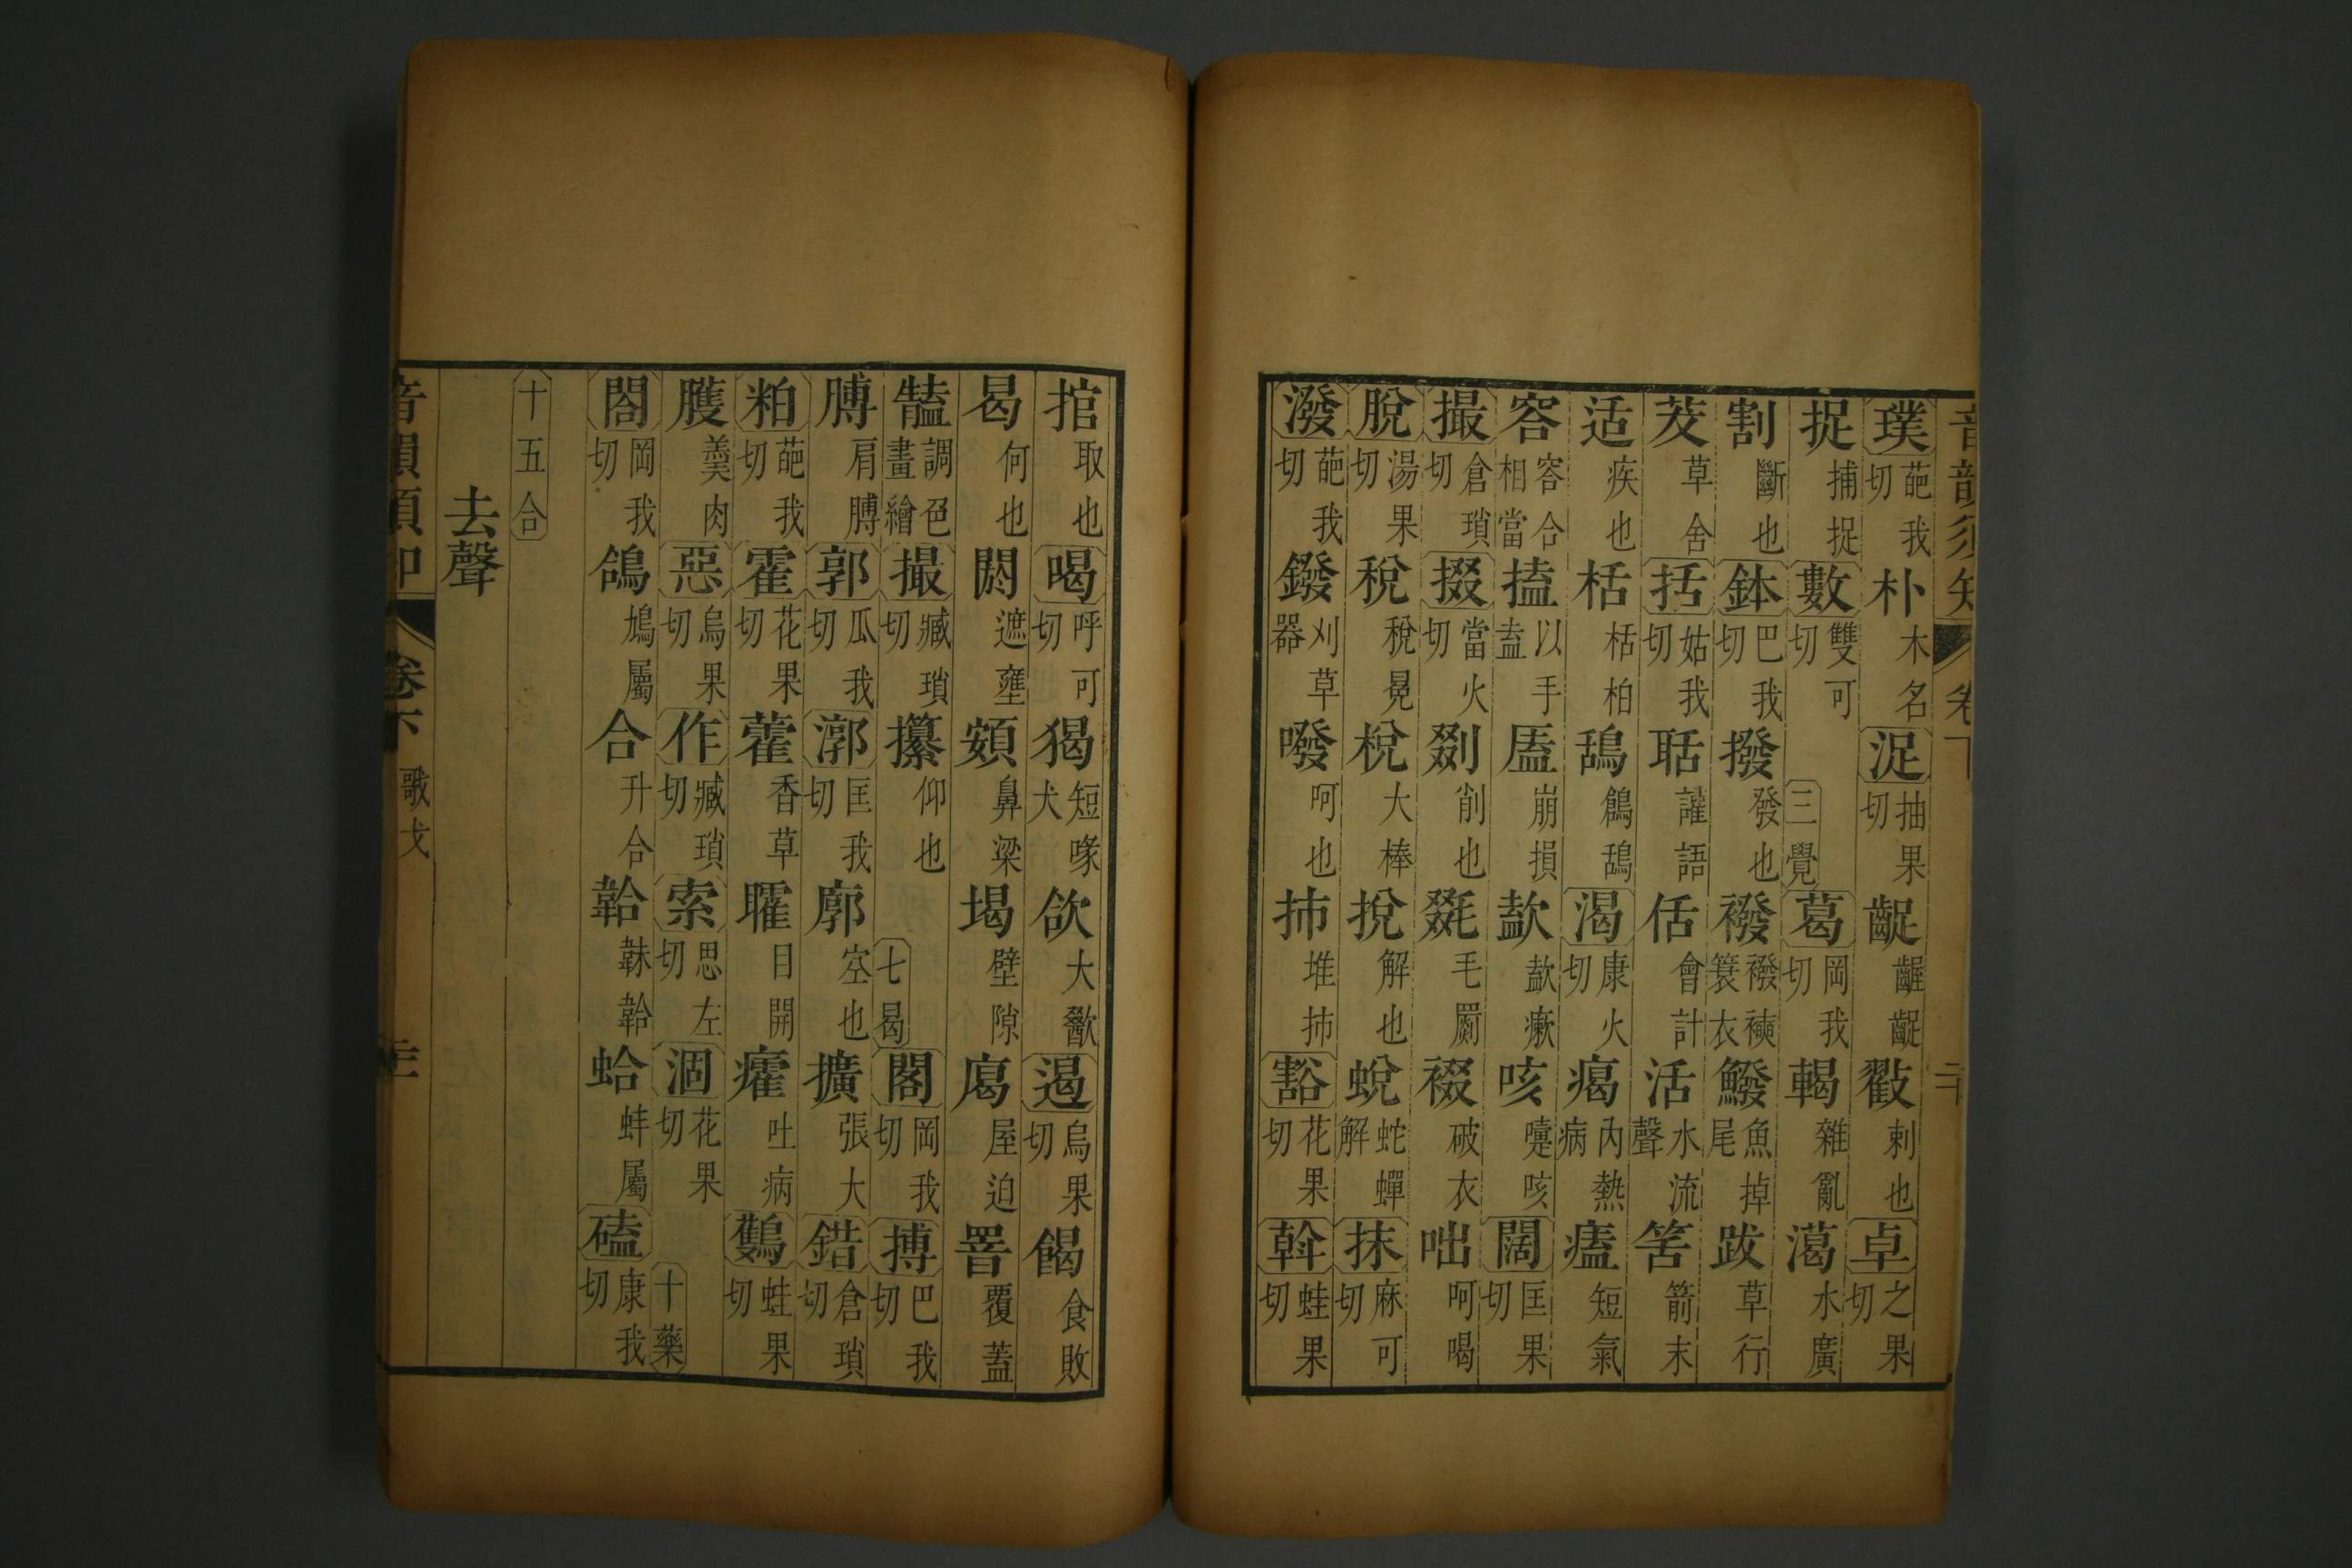 音韻須知 卷下 二十
璞葩我切朴木名浞抽果切齪齷齪戳刺也卓之果切
捉捕捉數雙可切三覺葛岡我切轕雜亂㵧水廣
割斷也鉢巴我切撥發也襏襏襫簑衣鱍魚掉尾跋草行
茇草舍括姑我切聒讙語佸會計活水流聲筈箭末
适疾也栝栝柏鴰鶬鴰渴康火切㵣內熱病瘔短氣
容合相當搕以手盍崩損歁歁瘶咳嚏咳闊匡果切
撮倉瑣切掇當火切剟削也毲毛罽裰破衣咄呵喝
脫湯果切稅稅冕梲大棒挩解也蛻蛇蟬解抹麻可切
潑葩我切鏺刈草器噃呵也抪堆抪豁花果切斡蛙果切
捾取也喝呼可切猲短喙犬欱大歠遏烏果切餲食敗
曷何也閼遮壅頞鼻梁堨壁隙㢌屋迫罯覆蓋
𩫛調色畫繪撮臧瑣切攥仰也七曷閣岡我切搏巴我切
膊肩膊郭瓜我切漷匡我切廓空也擴張大錯倉瑣切
粕葩我切霍花果切藿香草矐目開癨吐病鸑蛙果切
臒羹肉惡烏果切作臧瑣切索思左切涸花果切十藥
閤岡我切鴿鳩屬合升合韐韎韐蛤蚌屬磕康我切
十五合
去聲
音韻須知 卷下 歌戈